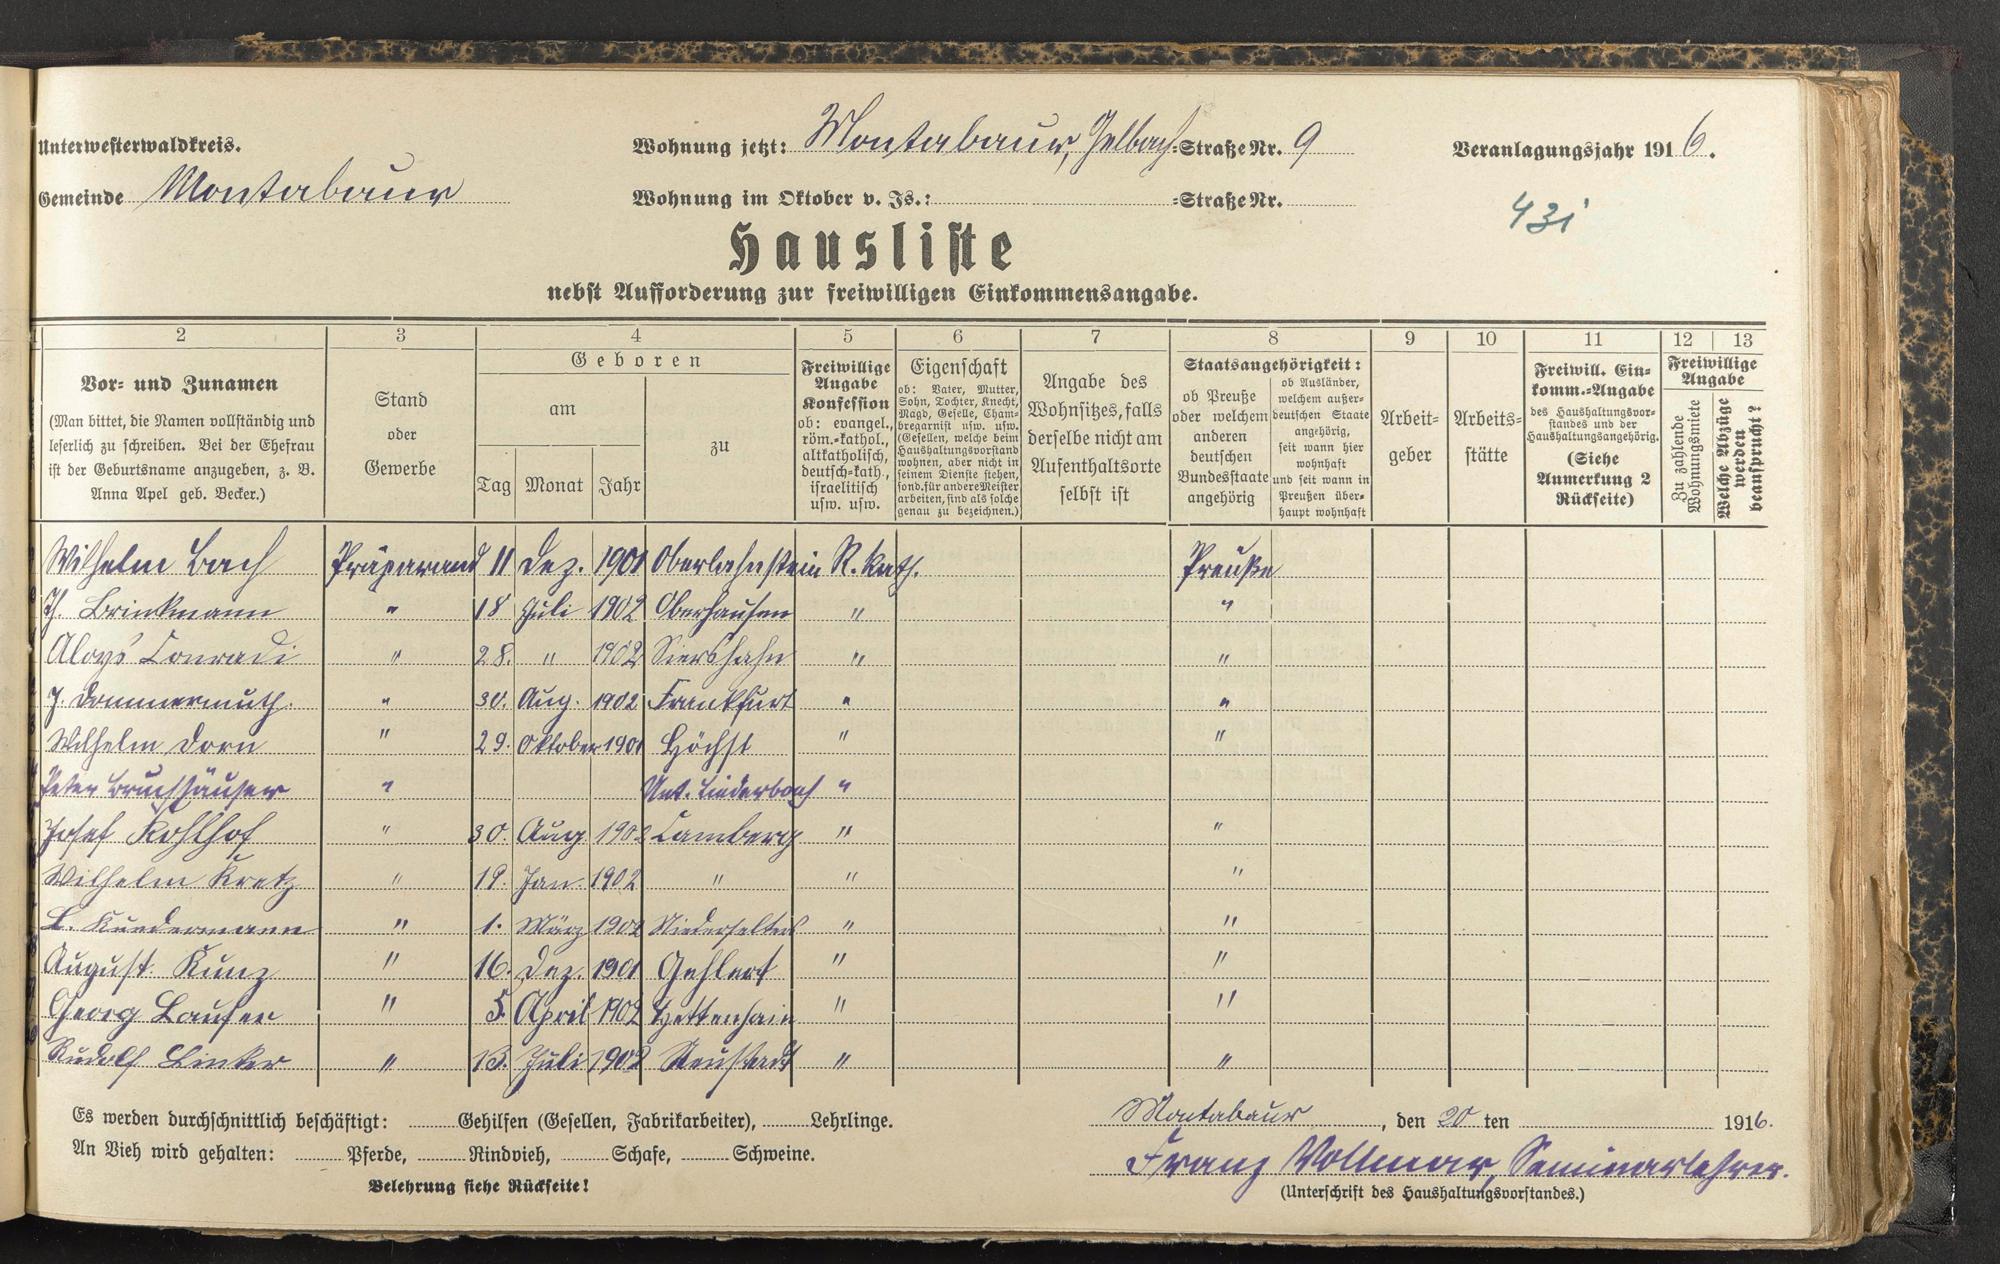 Unterwesterwaldkreis.
Gemeinde Montabaur
Wohnung jetzt: Montabaur, Gelbach=Straße Nr. 9
Wohnung im Oktober v. Js.: =Straße Nr.
Veranlagungsjahr 1916.
43i
Hausliste
nebst Aufforderung zur freiwilligen Einkommensangabe.
1 2 3 4 5 6 7 8 9 10 11 12 13
Vor- und Zunamen
(Man bittet, die Namen vollständig und
leserlich zu schreiben. Bei der Ehefrau
ist der Geburtsname anzugeben, z. B.
Anna Apel geb. Becker.)
Stand
oder
Gewerbe
Geboren
am
Tag Monat Jahr
zu
Freiwillige
Angabe
Konfession
ob: evangel.,
röm.-kathol.,
altkatholisch,
deutsch-kath.,
israelitisch
usw. usw.
Eigenschaft
ob: Vater, Mutter,
Sohn, Tochter, Knecht,
Magd, Geselle, Cham-
bregarnist usw. usw.
(Gesellen, welche beim
Haushaltungsvorstand
wohnen, aber nicht in
seinem Dienste stehen,
sond. für andere Meister
arbeiten, sind als solche
genau zu bezeichnen.)
Angabe des
Wohnsitzes, falls
derselbe nicht am
Aufenthaltsorte
selbst ist
Staatsangehörigkeit:
ob Preuße
oder welchem
anderen
deutschen
Bundesstaate
angehörig
ob Ausländer,
welchem außer-
deutschen Staate
angehörig,
seit wann hier
wohnhaft
und seit wann in
Preußen über-
haupt wohnhaft
Arbeit-
geber
Arbeits-
stätte
Freiwill. Ein-
komm.-Angabe
des Haushaltungsvor-
standes und der
Haushaltungsangehörig.
(Siehe
Anmerkung 2
Rückseite)
Freiwillige
Angabe
Zu zahlende
Wohnungsmiete
Welche Abzüge
werden
beansprucht?
Wilhelm Bach Präparand 11 Dez. 1901 Oberlahnstein R. kath. Preuße
Th. Brinkmann " 18 Juli 1902 Oberhausen " "
Aloys Conradi " 28. " 1902 Siershahn " "
J. Dommermuth. " 30. Aug. 1902 Frankfurt " "
Wilhelm Dorn " 29. Oktober 1901 Höchst " "
Peter Bruchhäuser " Unt. Liederbach "
Josef Kohlhof " 30. Aug 1902 Camberg " "
Wilhelm Kretz " 19. Jan. 1902 " " "
1. März 1902 Niederselters " "
August Kunz " 16. Dez. 1901 Gehlert " "
Georg Laufer " 5. April 1902 Hettenhain " "
Rudolf Linker " 13. Juli 1902 Neustadt " "
Es werden durchschnittlich beschäftigt: Gehilfen (Gesellen, Fabrikarbeiter), Lehrlinge.
An Vieh wird gehalten: Pferde, Rindvieh, Schafe, Schweine.
Belehrung siehe Rückseite!
Montabaur, den 20 ten 1916.
Franz Vollmar, Seminarlehrer.
(Unterschrift des Haushaltungsvorstandes.)